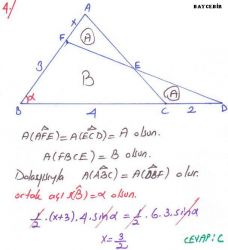 4/
BAYCEBİR
A
x
F
A
3
E
B
A
α
B
4
C
2
D
A(AFE) = A(ECD) = A olsun.
A(FBCE) = B olsun.
Dolayısıyla A(ABC) = A(DBF) olur.
ortak açı s(B) = α olsun.
1/2 . (x+3) . 4 . sinα = 1/2 . 6 . 3 . sinα
x = 3/2
CEVAP: C